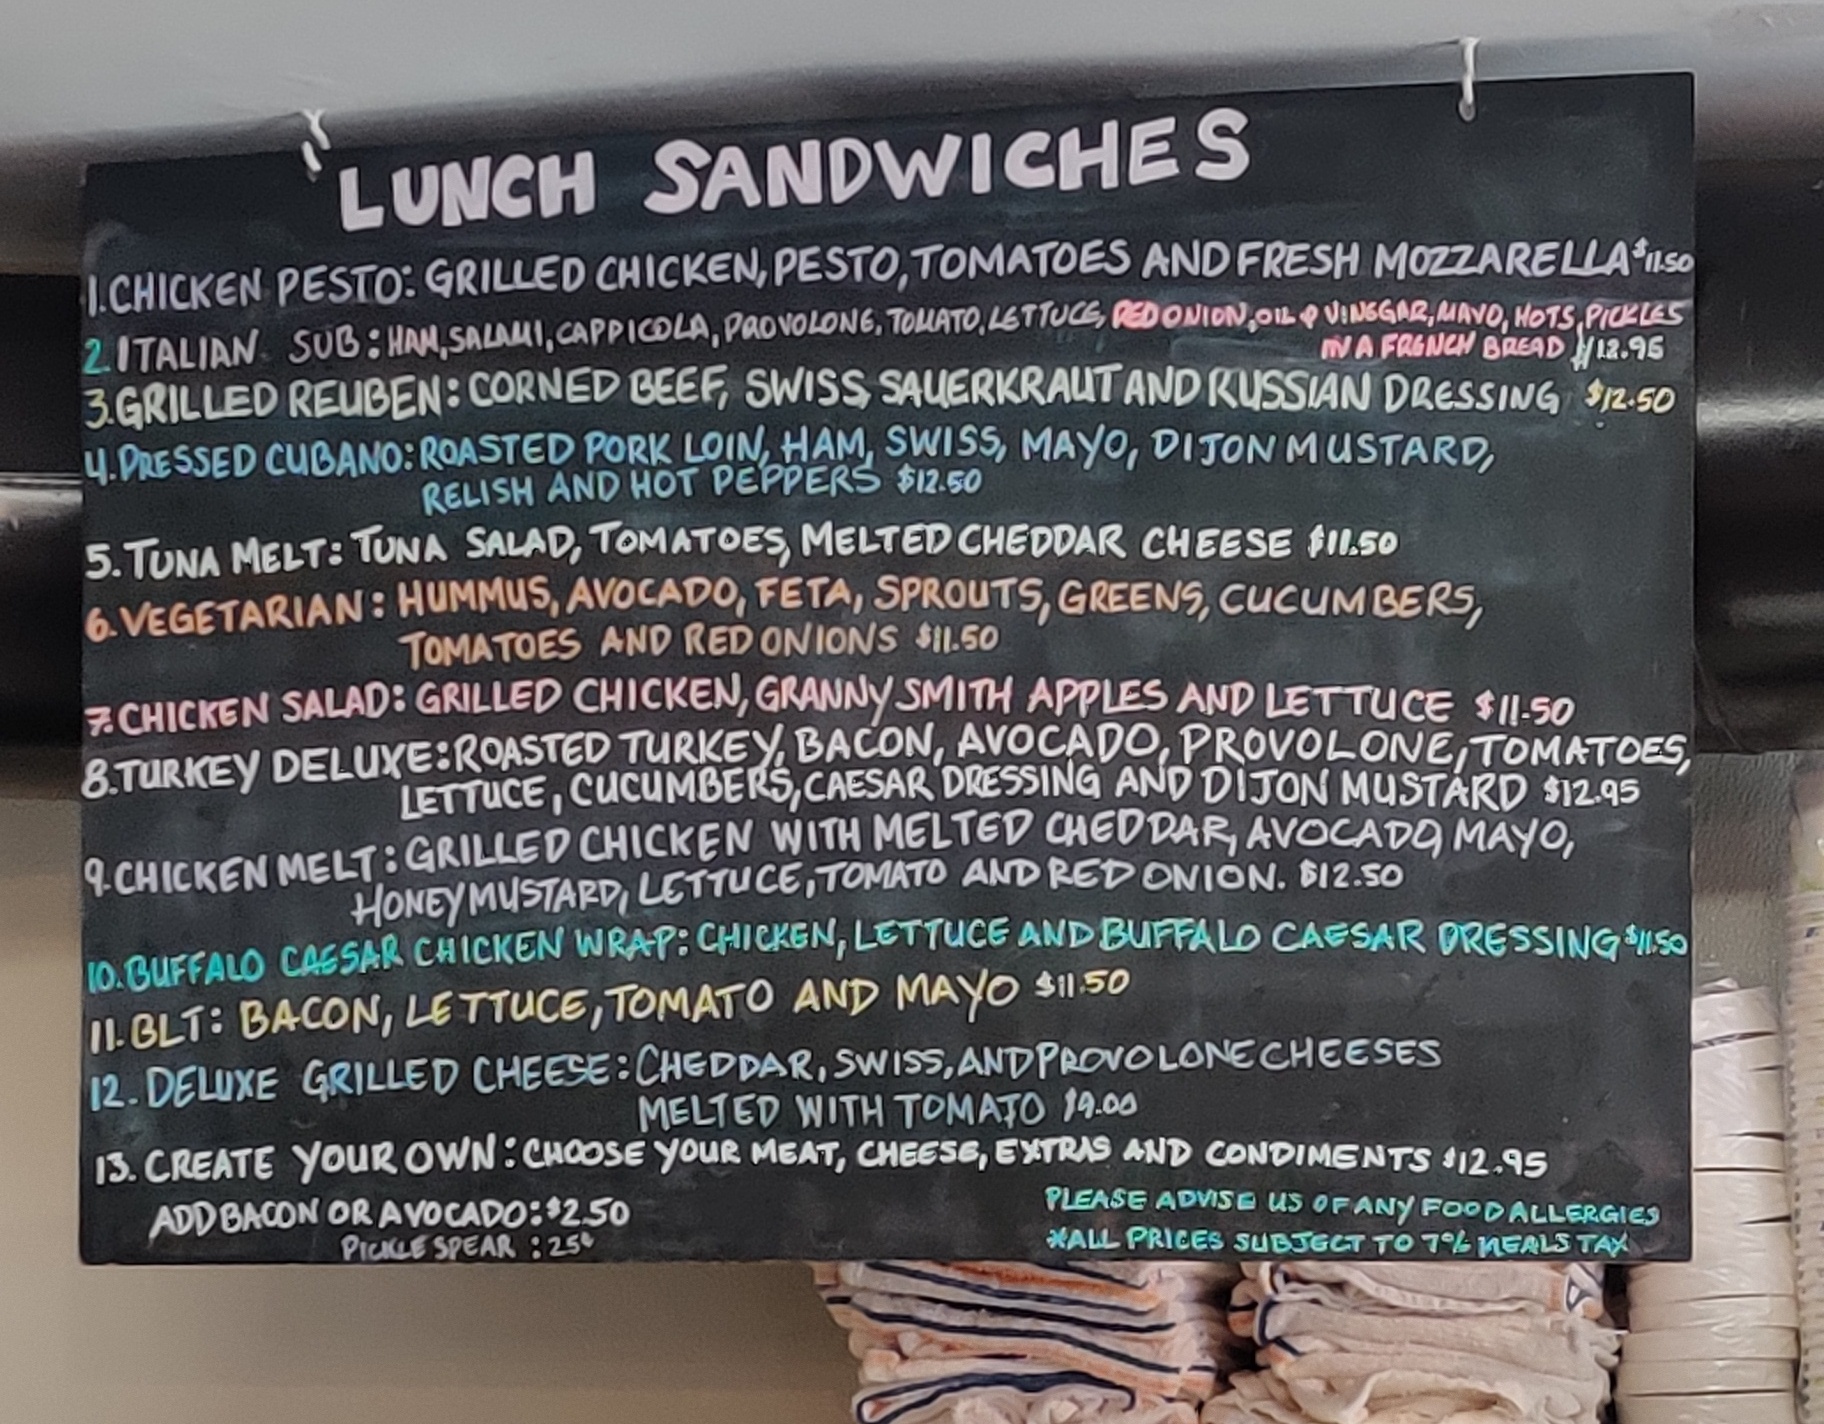 LUNCH SANDWICHES
1. CHICKEN PESTO: GRILLED CHICKEN, PESTO, TOMATOES AND FRESH MOZZARELLA $11.50
2. ITALIAN SUB: HAM, SALAMI, CAPPICOLA, PROVOLONE, TOMATO, LETTUCE, RED ONION, OIL & VINEGAR, MAYO, HOTS, PICKLES
IN A FRENCH BREAD $12.95
3. GRILLED REUBEN: CORNED BEEF, SWISS, SAUERKRAUT AND RUSSIAN DRESSING $12.50
4. PRESSED CUBANO: ROASTED PORK LOIN, HAM, SWISS, MAYO, DIJON MUSTARD,
RELISH AND HOT PEPPERS $12.50
5. TUNA MELT: TUNA SALAD, TOMATOES, MELTED CHEDDAR CHEESE $11.50
6. VEGETARIAN: HUMMUS, AVOCADO, FETA, SPROUTS, GREENS, CUCUMBERS,
TOMATOES AND RED ONIONS $11.50
7. CHICKEN SALAD: GRILLED CHICKEN, GRANNY SMITH APPLES AND LETTUCE $11.50
8. TURKEY DELUXE: ROASTED TURKEY, BACON, AVOCADO, PROVOLONE, TOMATOES,
LETTUCE, CUCUMBERS, CAESAR DRESSING AND DIJON MUSTARD $12.95
9. CHICKEN MELT: GRILLED CHICKEN WITH MELTED CHEDDAR, AVOCADO, MAYO,
HONEY MUSTARD, LETTUCE, TOMATO AND RED ONION. $12.50
10. BUFFALO CAESAR CHICKEN WRAP: CHICKEN, LETTUCE AND BUFFALO CAESAR DRESSING $11.50
11. BLT: BACON, LETTUCE, TOMATO AND MAYO $11.50
12. DELUXE GRILLED CHEESE: CHEDDAR, SWISS, AND PROVOLONE CHEESES
MELTED WITH TOMATO $9.00
13. CREATE YOUR OWN: CHOOSE YOUR MEAT, CHEESE, EXTRAS AND CONDIMENTS $12.95
ADD BACON OR AVOCADO: $2.50
PICKLE SPEAR: 25¢
PLEASE ADVISE US OF ANY FOOD ALLERGIES
*ALL PRICES SUBJECT TO 7% MEALS TAX